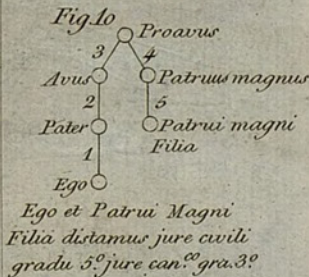 Fig. 10
Proavus
3 4
Avus Patruus magnus
2 5
Pater Patrui magni
Filia
1
Ego
Ego et Patrui Magni
Filia distamus jure civili
gradu 5.º jure can.co gra. 3.º